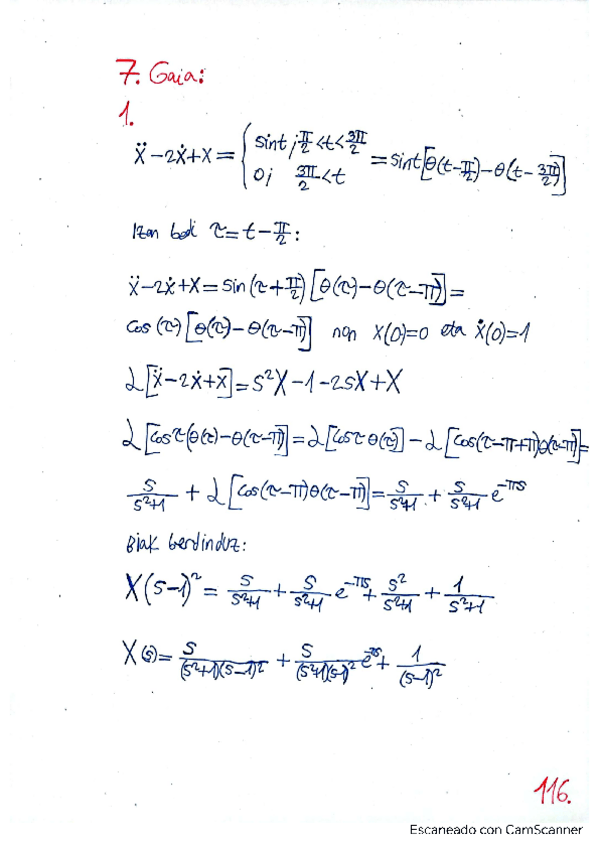 7. Gaia:
1.
ẍ-2ẋ+x = { sint ; π/2 < t < 3π/2
0 ; 3π/2 < t = sint[θ(t-π/2)-θ(t-3π/2)]
Izan bedi τ = t-π/2 :
ẍ-2ẋ+x = sin(τ+π/2)[θ(τ)-θ(τ-π)] =
cos(τ)[θ(τ)-θ(τ-π)] non x(0)=0 eta ẋ(0)=1
L[ẍ-2ẋ+x] = s²X-1-2sX+X
L[cosτ(θ(τ)-θ(τ-π)] = L[cosτ θ(τ)] - L[cos(τ-π+π)θ(τ-π] =
s/(s²+1) + L[cos(τ-π)θ(τ-π)] = s/(s²+1) + s/(s²+1) e^-πs
Biak berdinduz:
X(s-1)² = s/(s²+1) + s/(s²+1) e^-πs + s²/(s²+1) + 1/(s²+1)
X(s) = s/((s²+1)(s-1)²) + s/((s²+1)(s-1)²) e^-πs + 1/(s-1)²
116.
Escaneado con CamScanner